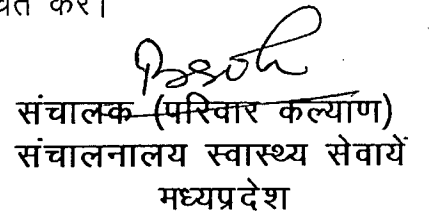 करें।
संचालक (परिवार कल्याण)
संचालनालय स्वास्थ्य सेवायें
मध्यप्रदेश